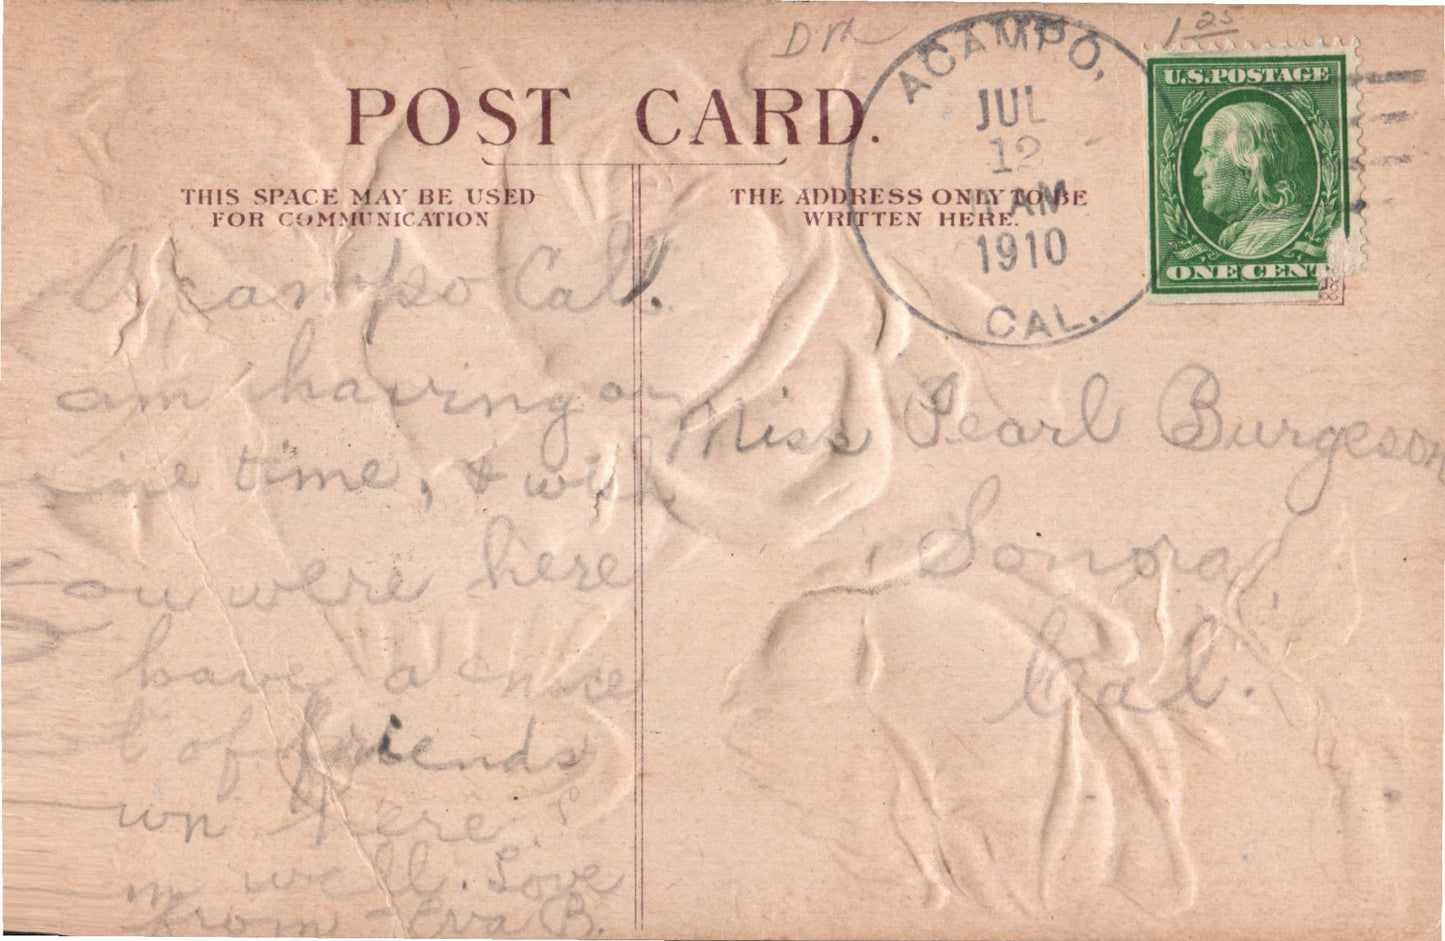 1 25
POST CARD.
THIS SPACE MAY BE USED
FOR COMMUNICATION
THE ADDRESS ONLY TO BE
WRITTEN HERE.
ACAMPO,
JUL
12
AM
1910
CAL.
U.S. POSTAGE
ONE CENT
Acampo Cal.
am having a
ine time, & wish
You were here
have a nice
of friends
wn here.
m well. Love
from - Eva B.
Miss Pearl Burgeson
Sonora
Cal.